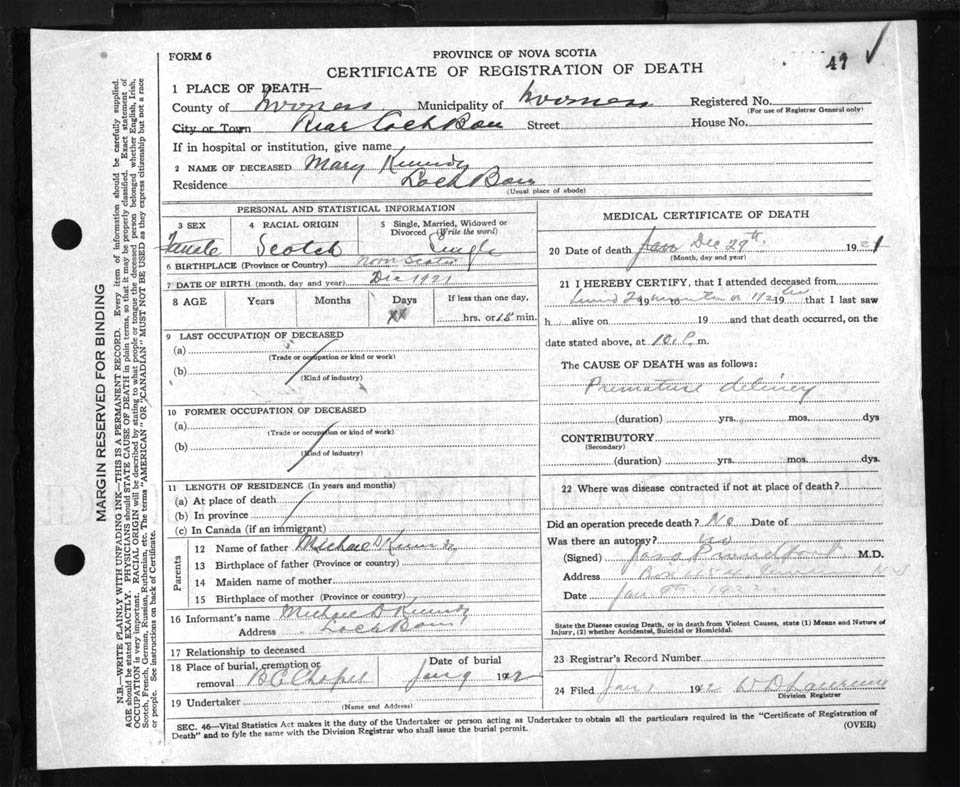 47
FORM 6
PROVINCE OF NOVA SCOTIA
CERTIFICATE OF REGISTRATION OF DEATH
1 PLACE OF DEATH—
County of Inverness Municipality of Inverness Registered No.
(For use of Registrar General only)
City or Town Rear Loch Ban Street House No.
If in hospital or institution, give name
2 NAME OF DECEASED Mary Kennedy
Residence Loch Ban
(Usual place of abode)
PERSONAL AND STATISTICAL INFORMATION
3 SEX 4 RACIAL ORIGIN 5 Single, Married, Widowed or Divorced (Write the word)
Female Scotch Single
6 BIRTHPLACE (Province or Country) Nova Scotia
7 DATE OF BIRTH (month, day and year) Dec 1921
8 AGE Years Months Days If less than one day,
hrs. or 15 min.
9 LAST OCCUPATION OF DECEASED
(a)
(Trade or occupation or kind or work)
(b)
(Kind of industry)
10 FORMER OCCUPATION OF DECEASED
(a)
(Trade or occupation or kind of work)
(b)
(Kind of industry)
11 LENGTH OF RESIDENCE (In years and months)
(a) At place of death
(b) In province
(c) In Canada (if an immigrant)
Parents
12 Name of father Michael D Kennedy
13 Birthplace of father (Province or country)
14 Maiden name of mother
15 Birthplace of mother (Province or country)
16 Informant's name Michael D Kennedy
Address Loch Ban
17 Relationship to deceased
18 Place of burial, cremation or removal B C Chapel Date of burial Jan 9 1922
19 Undertaker
(Name and Address)
MEDICAL CERTIFICATE OF DEATH
20 Date of death Dec 29th 1921
(Month, day and year)
21 I HEREBY CERTIFY, that I attended deceased from
19 to 19 that I last saw
h alive on 19 and that death occurred, on
date stated above, at 10 P. m.
The CAUSE OF DEATH was as follows:
Premature delivery
(duration) yrs. mos. dys
CONTRIBUTORY
(Secondary)
(duration) yrs. mos. dys.
22 Where was disease contracted if not at place of death?
Did an operation precede death? No Date of
Was there an autopsy? No
(Signed) M.D.
Address N S
Date Jan 9th 192
State the Disease causing Death, or in death from Violent Causes, state (1) Means and Nature of
Injury, (2) whether Accidental, Suicidal or Homicidal.
23 Registrar's Record Number
24 Filed Jan 1922 W D Lawrence
Division Registrar
SEC. 46—Vital Statistics Act makes it the duty of the Undertaker or person acting as Undertaker to obtain all the particulars required in the "Certificate of Registration of
Death" and to fyle the same with the Division Registrar who shall issue the burial permit.
(OVER)
MARGIN RESERVED FOR BINDING
N.B.—WRITE PLAINLY WITH UNFADING INK—THIS IS A PERMANENT RECORD. Every item of information should be carefully supplied.
AGE should be stated EXACTLY. PHYSICIANS should STATE CAUSE OF DEATH in plain terms, so that it may be properly classified. Exact statement of
OCCUPATION is very important. RACIAL ORIGIN will be described by stating to what people or tongue the deceased person belonged whether English, Irish,
Scotch, French, German, Russian, Ruthenian, etc. The terms "AMERICAN" OR "CANADIAN" MUST NOT BE USED as they express citizenship but not a race
or people. See instructions on back of Certificate.